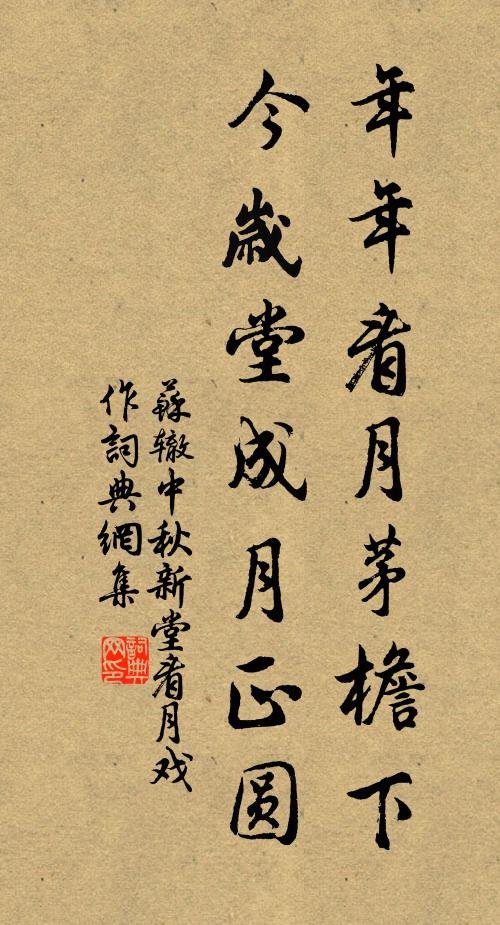 年年看月茅檐下
今歲堂成月正圆
蘇辙中秋新堂看月戏
作詞典網集
詞典网印